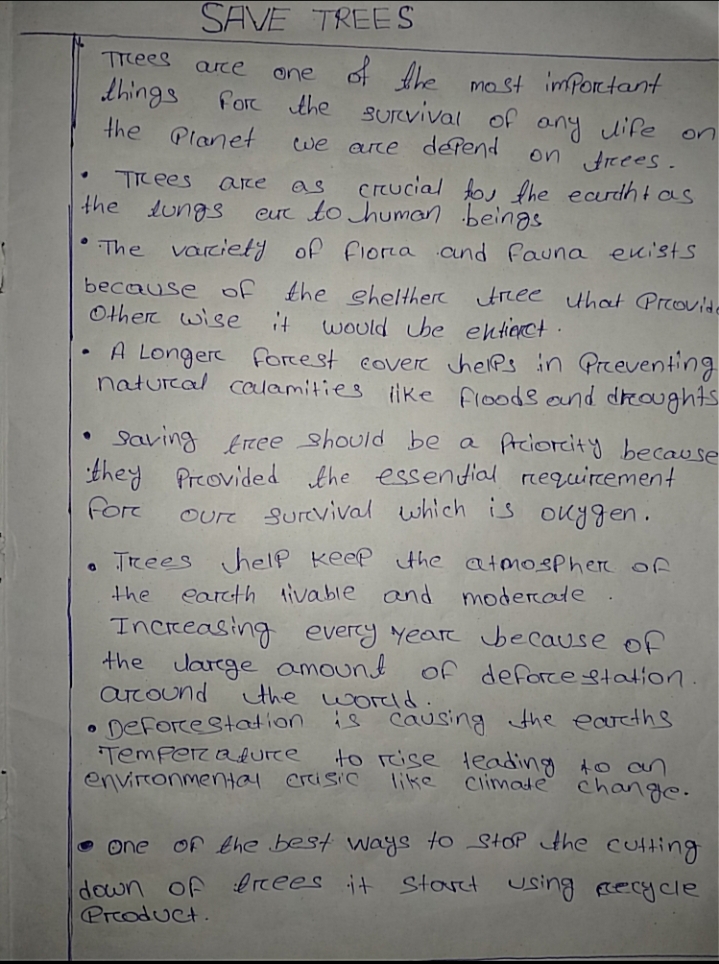 SAVE TREES
• Trees are one of the most important
things for the survival of any life on
the Planet we are depend on trees.
• Trees are as crucial for the earth as
the lungs are to human beings
• The variety of flora and fauna exists
because of the shelther tree that Provide
Other wise it would be extienct.
• A Longer forest cover helps in Preventing
natural calamities like floods and droughts
• saving tree should be a Priority because
they Provided the essential requirement
for our survival which is oxygen.
• Trees help keep the atmospher of
the earth livable and moderate.
Increasing every year because of
the large amount of deforestation.
around the world.
• Deforestation is causing the earths
Temperature to rise leading to an
environmental crisic like climate change.
• One of the best ways to stop the cutting
down of trees it start using recycle
Product.